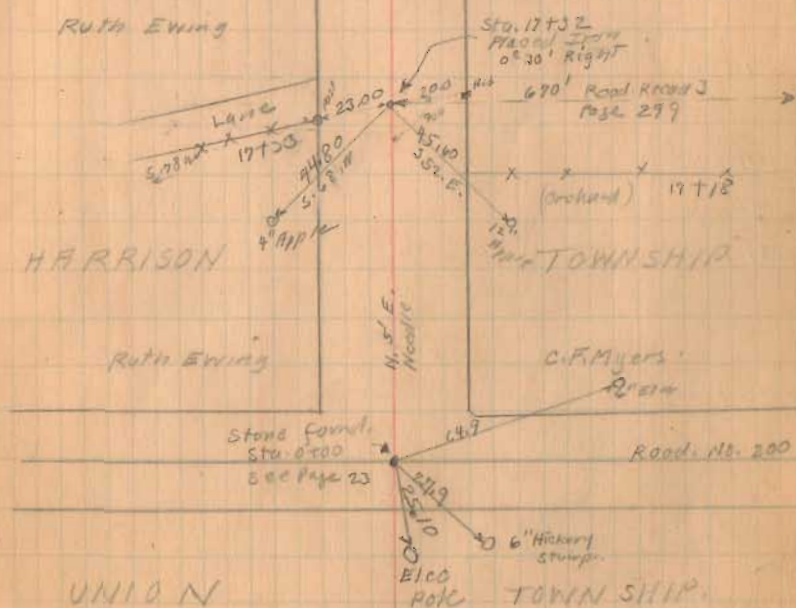 Ruth Ewing
Sta. 17+32
Placed Iron
0° 30' Right
Lane
23.00
20.0
670' Road Record 3
Page 299
S. 78
17+33
44.80
S. 68. W
45.40
S52. E.
4" Apple
12"
(Orchard)
17+18
HARRISON
TOWNSHIP
N. 5' E.
Needle
Ruth Ewing
C.F. Myers
Elm
Stone found.
Sta. 0+00
See Page 23
Road. No. 200
27.9
25.10
6" Hickory
Stump.
Elco
Pole
UNION
TOWNSHIP.